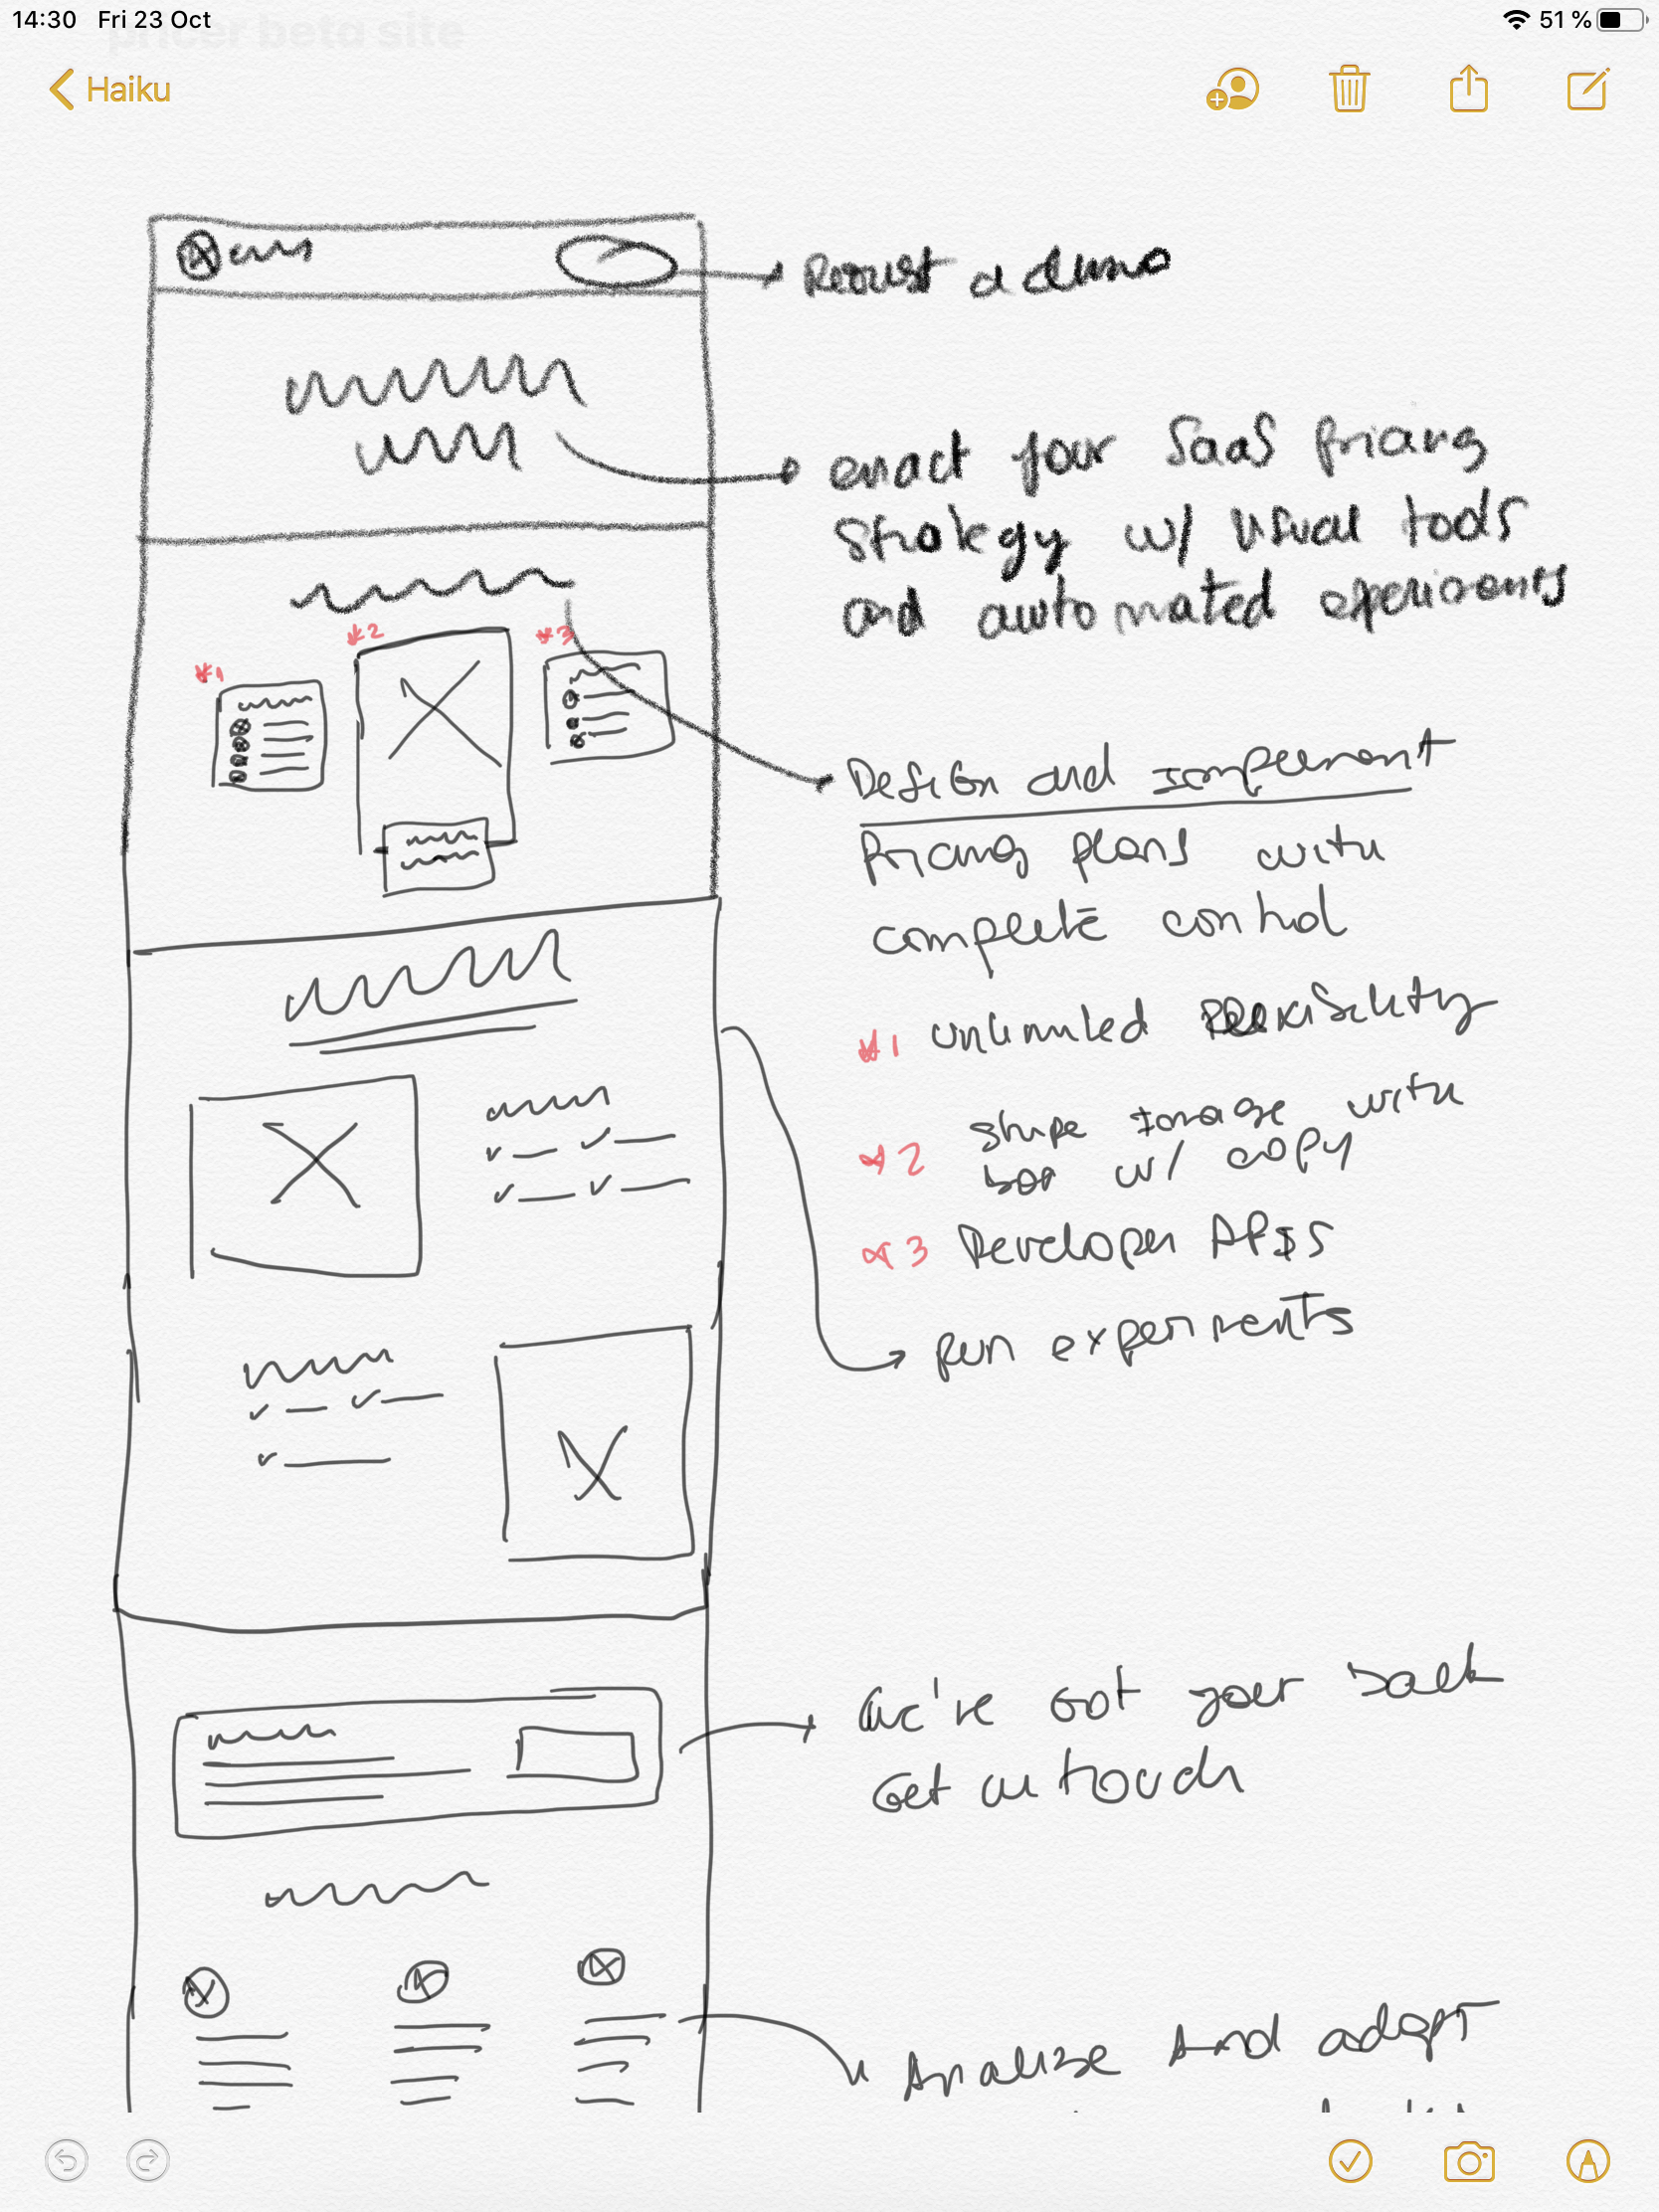 14:30 Fri 23 Oct
51 %
pricer beta site
Haiku
Request a demo
enact your SaaS pricing
strategy w/ visual tools
and automated experiments
#2
#3
#1
Design and implement
pricing plans with
complete control
#1 unlimited flexibility
#2 image with
box w/ copy
#3 Developer APIs
Run experiments
We've got your back
Get in touch
Analise And adapt